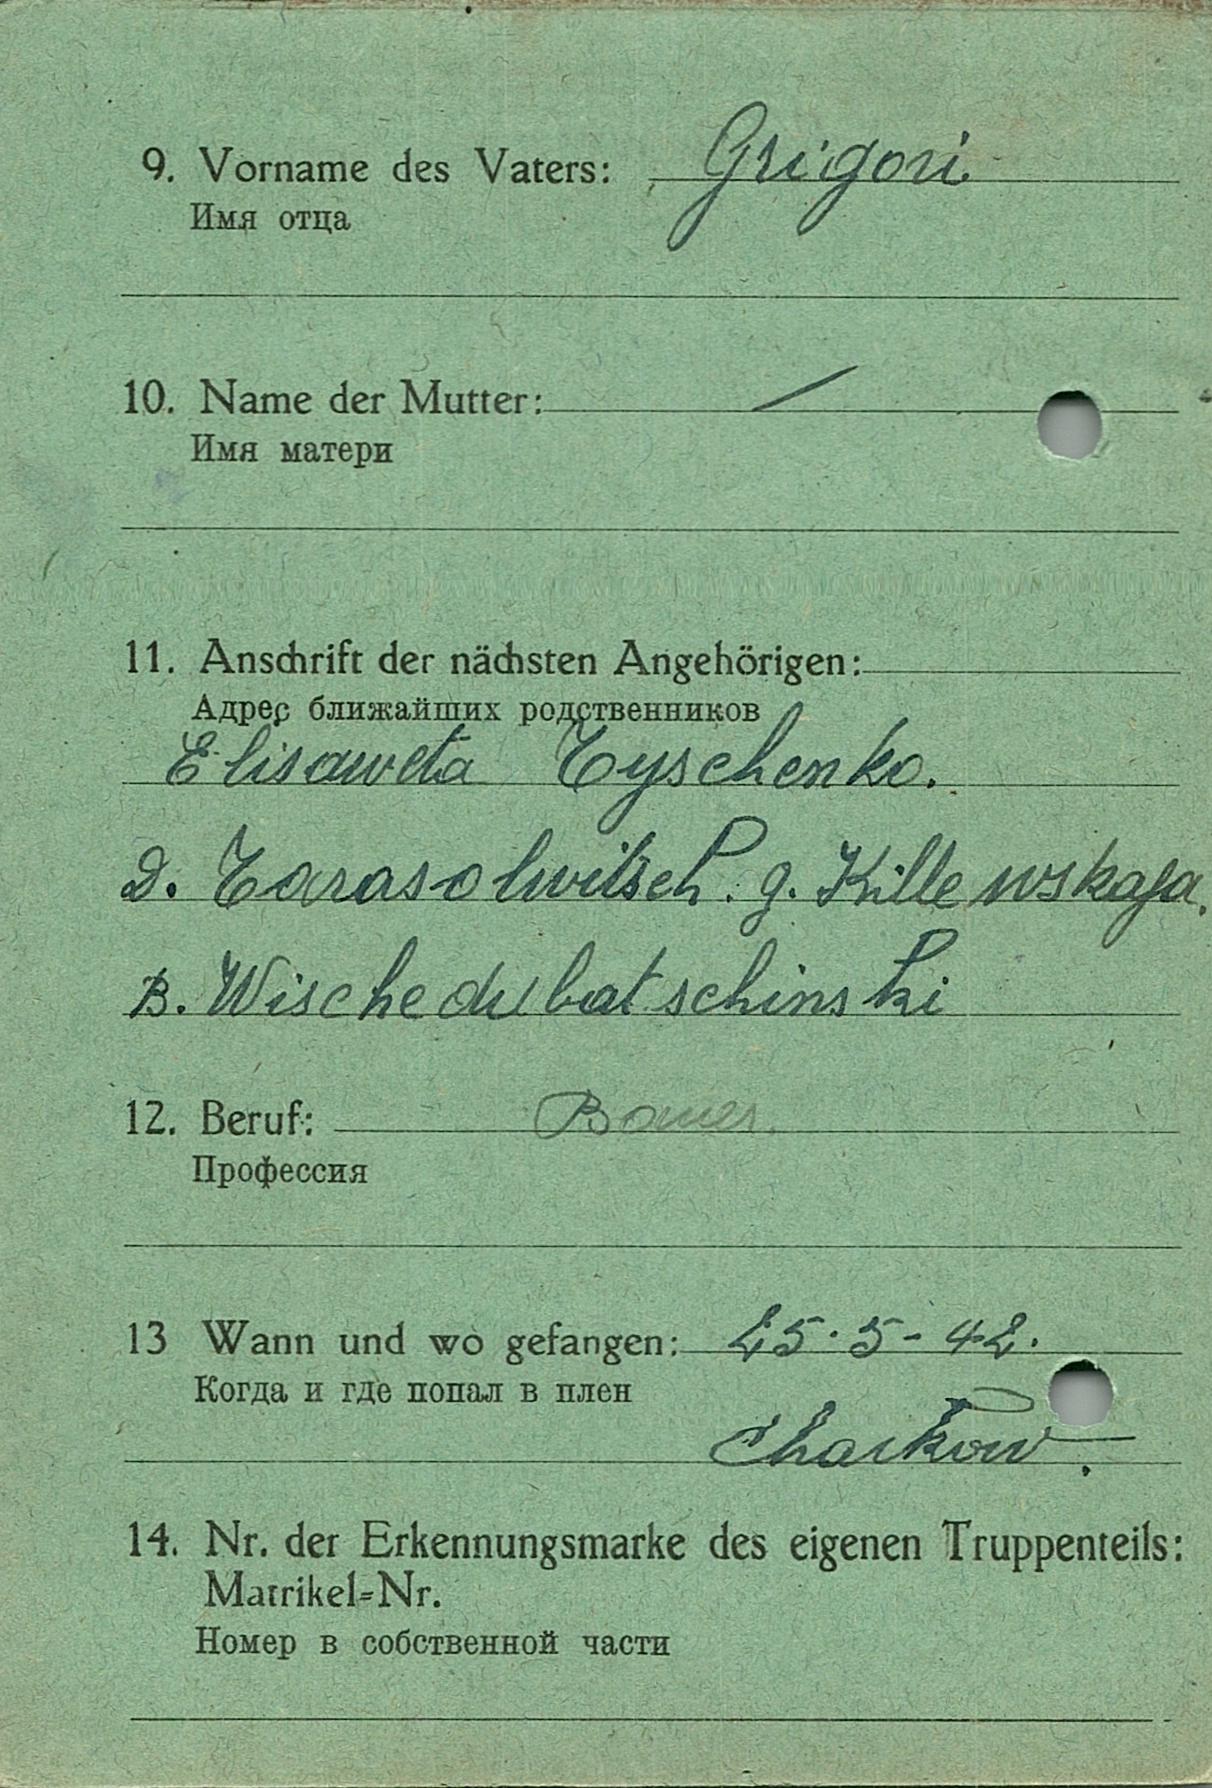 9. Vorname des Vaters: Grigori
Имя отца
10. Name der Mutter: /
Имя матери
11. Anschrift der nächsten Angehörigen:
Адрес ближайших родственников
Elisaweta Tyschenko.
D. Tarasolwitsch. g. Killewskaja.
B. Wischedubatschinski
12. Beruf: Bauer.
Профессия
13 Wann und wo gefangen: 25.5-42.
Когда и где попал в плен
Charkow.
14. Nr. der Erkennungsmarke des eigenen Truppenteils:
Matrikel-Nr.
Номер в собственной части